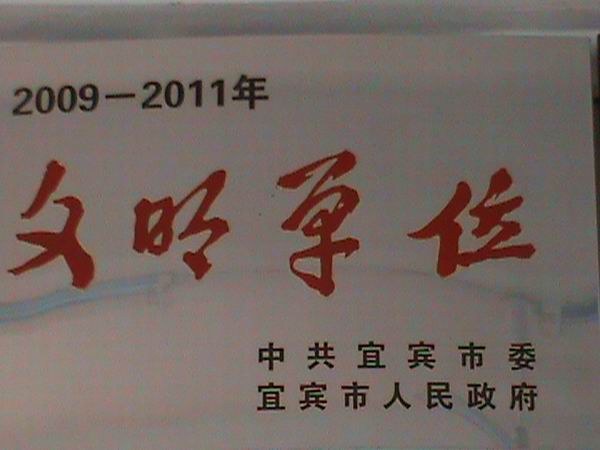 2009－2011年
文明单位
中共宜宾市委
宜宾市人民政府